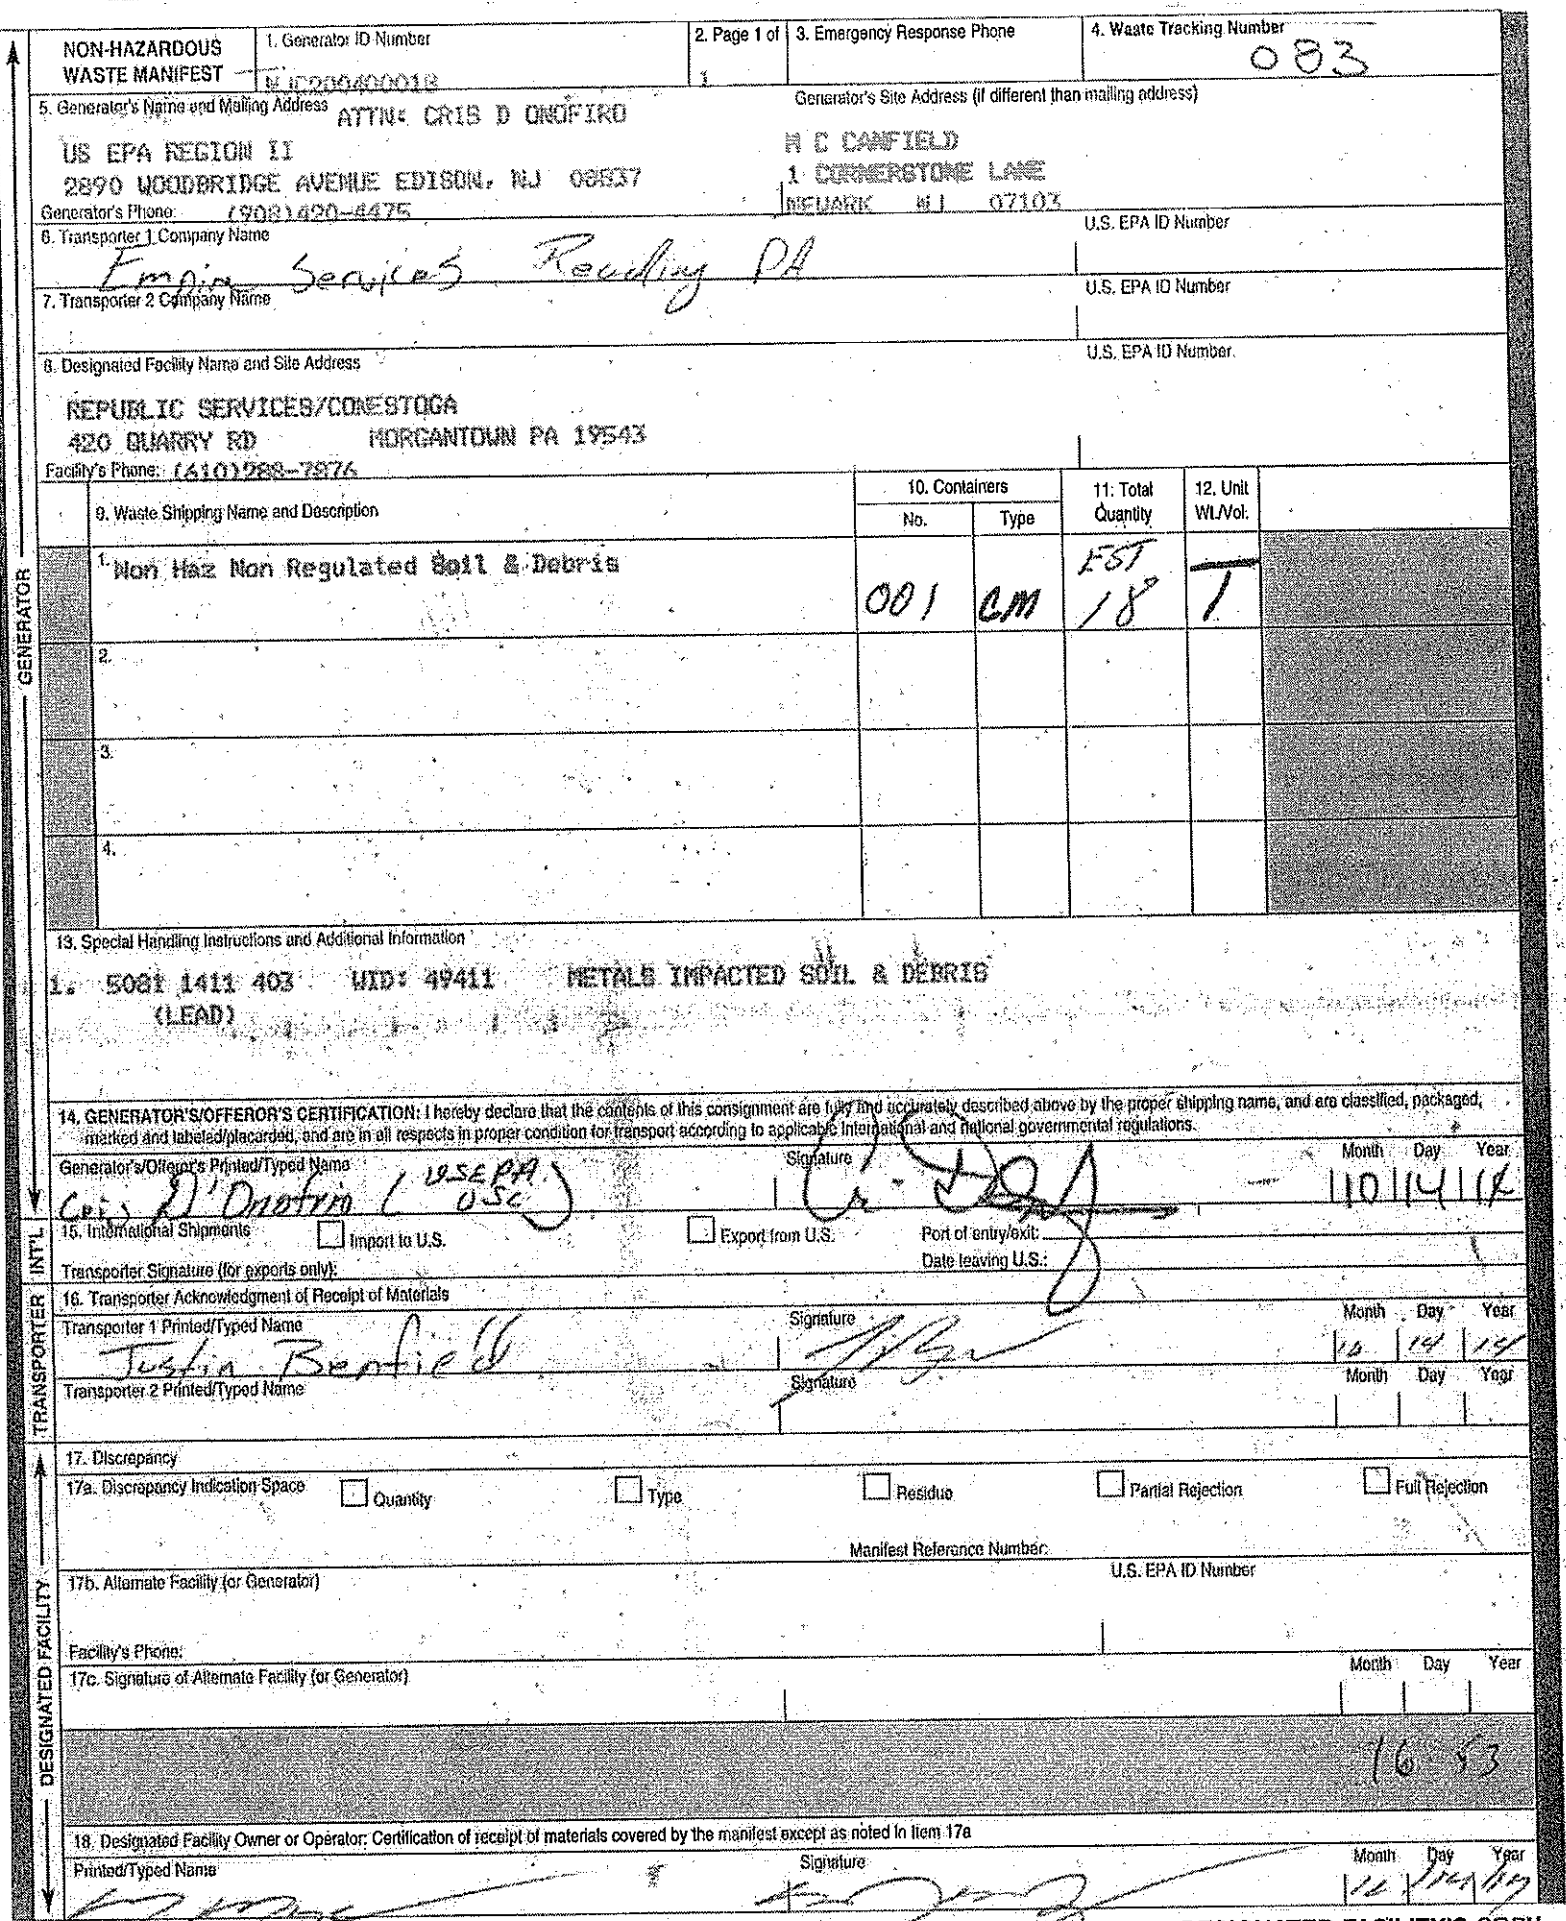 NON-HAZARDOUS WASTE MANIFEST
1. Generator ID Number
NJC200400018
2. Page 1 of
1
3. Emergency Response Phone
4. Waste Tracking Number
083
5. Generator's Name and Mailing Address ATTN: CRIS D ONOFIRO
Generator's Site Address (if different than mailing address)
US EPA REGION II
M C CANFIELD
2890 WOODBRIDGE AVENUE EDISON, NJ 08837
1 CORNERSTONE LANE
Generator's Phone: (908)420-4475
NEWARK NJ 07103
6. Transporter 1 Company Name
U.S. EPA ID Number
Empire Services Reading PA
7. Transporter 2 Company Name
U.S. EPA ID Number
8. Designated Facility Name and Site Address
U.S. EPA ID Number
REPUBLIC SERVICES/CONESTOGA
420 QUARRY RD MORGANTOWN PA 19543
Facility's Phone: (610)288-7876
9. Waste Shipping Name and Description
10. Containers
No.
Type
11. Total Quantity
12. Unit Wt./Vol.
1. Non Haz Non Regulated Soil & Debris
001
CM
EST 18
T
2.
3.
4.
13. Special Handling Instructions and Additional Information
1. 5081 1411 403 WID: 49411 METALS IMPACTED SOIL & DEBRIS
(LEAD)
14. GENERATOR'S/OFFEROR'S CERTIFICATION: I hereby declare that the contents of this consignment are fully and accurately described above by the proper shipping name, and are classified, packaged,
marked and labeled/placarded, and are in all respects in proper condition for transport according to applicable international and national governmental regulations.
Generator's/Offeror's Printed/Typed Name
Signature
Month Day Year
Cris D'Onofrio (USEPA OSC)
10 14 14
15. International Shipments
Import to U.S.
Export from U.S.
Port of entry/exit:
Transporter Signature (for exports only):
Date leaving U.S.:
16. Transporter Acknowledgment of Receipt of Materials
Transporter 1 Printed/Typed Name
Signature
Month Day Year
Justin Benfield
10 14 14
Transporter 2 Printed/Typed Name
Signature
Month Day Year
17. Discrepancy
17a. Discrepancy Indication Space
Quantity
Type
Residue
Partial Rejection
Full Rejection
Manifest Reference Number:
17b. Alternate Facility (or Generator)
U.S. EPA ID Number
Facility's Phone:
17c. Signature of Alternate Facility (or Generator)
Month Day Year
18. Designated Facility Owner or Operator: Certification of receipt of materials covered by the manifest except as noted in Item 17a
Printed/Typed Name
Signature
Month Day Year
GENERATOR
INT'L
TRANSPORTER
DESIGNATED FACILITY